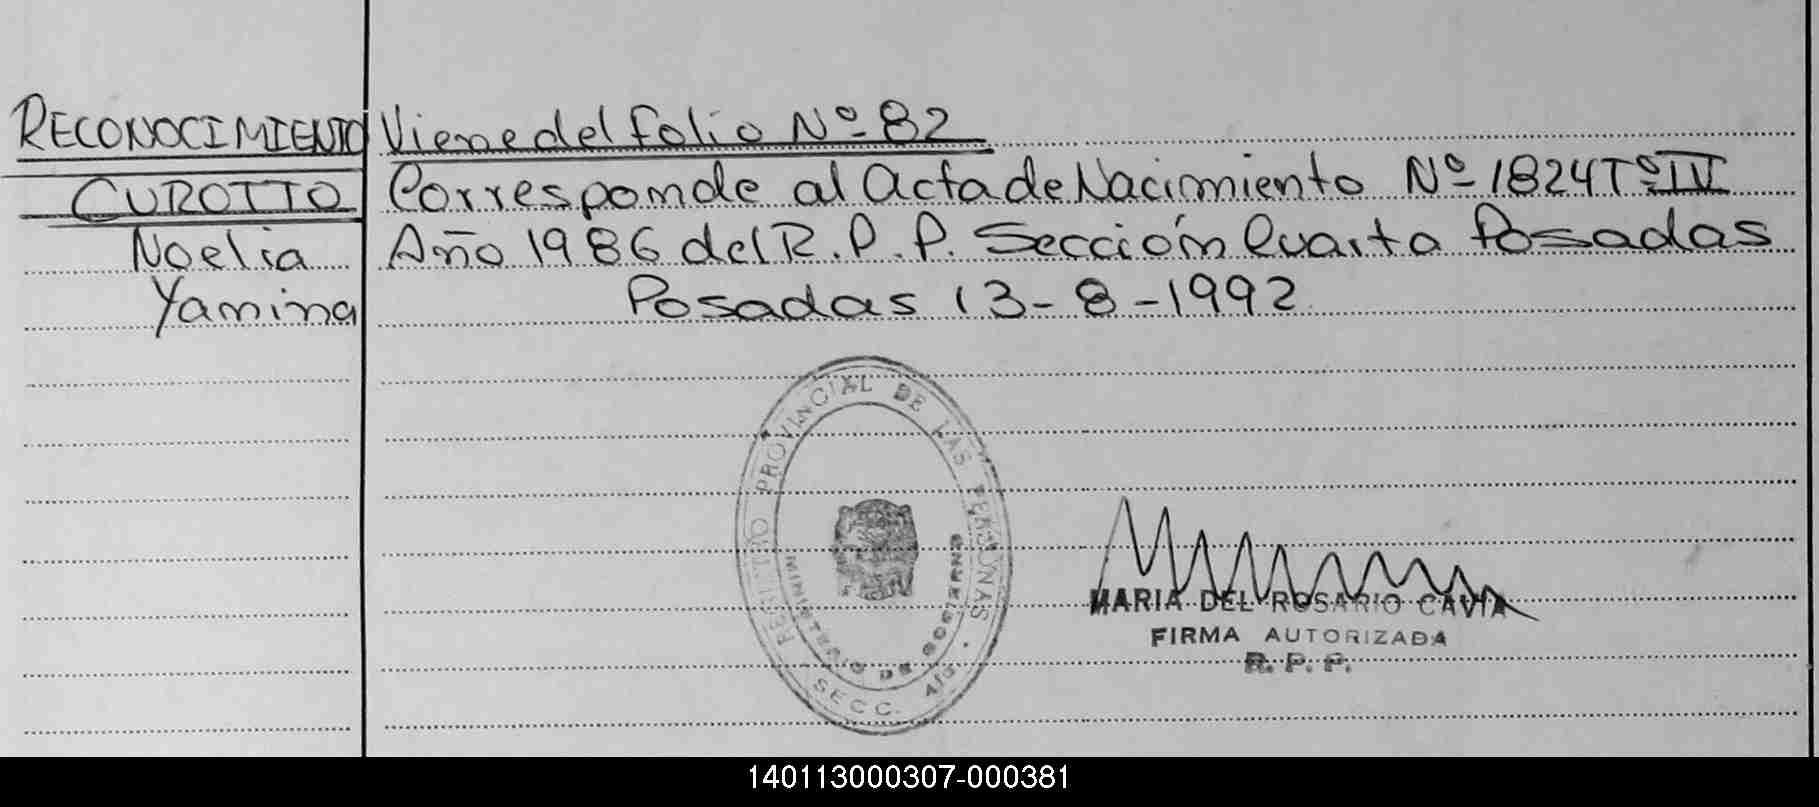 RECONOCIMIENTO Viene del folio Nº 82
CUROTTO Corresponde al Acta de Nacimiento Nº 1824 Tº IV
Noelia Año 1986 del R.P.P. Sección Cuarta Posadas
Yamina Posadas 13-8-1992
REGISTRO PROVINCIAL DE LAS PERSONAS
MINISTERIO DE GOBIERNO
SECC.
MARIA DEL ROSARIO CAVIA
FIRMA AUTORIZADA
R. P. P.
140113000307-000381